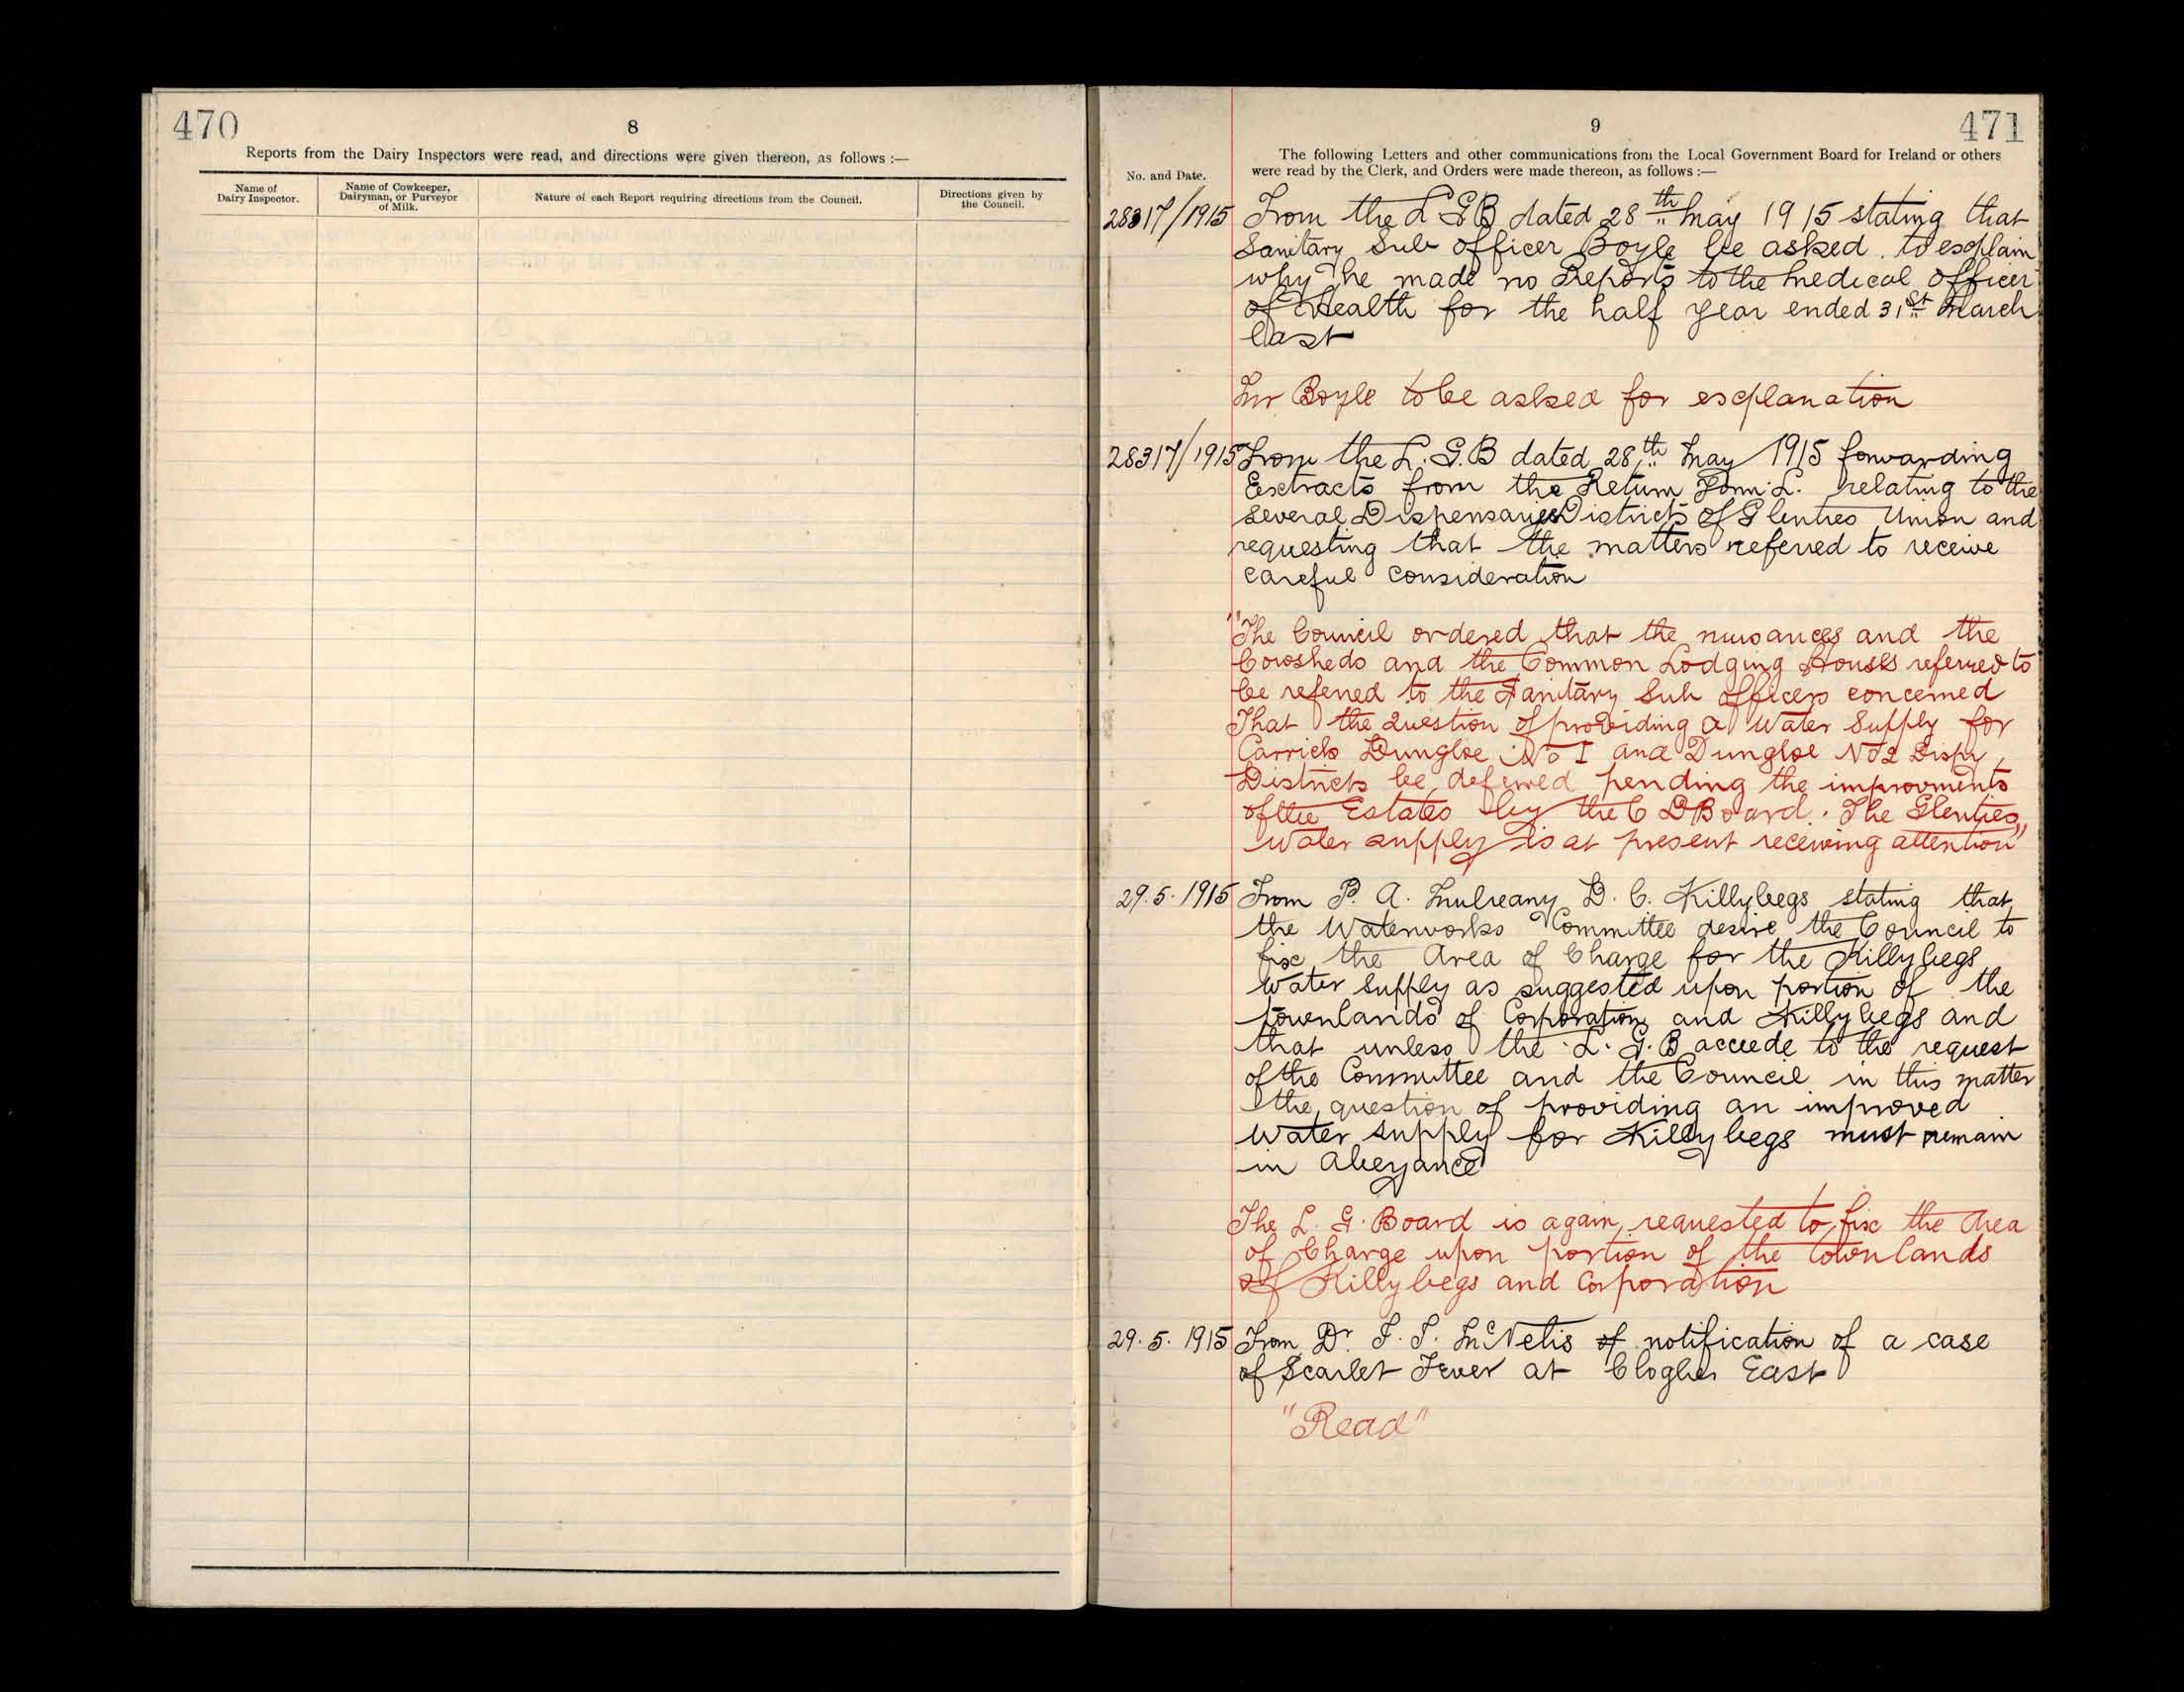 470
8
Reports from the Dairy Inspectors were read, and directions were given thereon, as follows :—
Name of Dairy Inspector.
Name of Cowkeeper, Dairyman, or Purveyor of Milk.
Nature of each Report requiring directions from the Council.
Directions given by the Council.
9
471
The following Letters and other communications from the Local Government Board for Ireland or others
were read by the Clerk, and Orders were made thereon, as follows :—
No. and Date.
28317/1915 From the L G B dated 28th May 1915 stating that
Sanitary Sub officer Boyle be asked to explain
why he made no Reports to the Medical Officer
of Health for the half year ended 31st March
last
Mr Boyle to be asked for explanation
28317/1915 From the L. G. B dated 28th May 1915 forwarding
Extracts from the Return Form L. relating to the
several Dispensary Districts of Glenties Union and
requesting that the matters referred to receive
careful consideration
"The Council ordered that the nuisances and the
Cowsheds and the Common Lodging Houses referred to
be referred to the Sanitary Sub officers concerned
That the Question of providing a Water Supply for
Carrick Dungloe No I and Dungloe No 2 Dispy
Districts be deferred pending the improvments
of the Estates by the C D Board. The Glenties
Water supply is at present receiving attention"
29.5.1915 From P. A. Mulreany D. C. Killybegs stating that
the Waterworks Committee desire the Council to
fix the Area of Charge for the Killybegs
Water Supply as suggested upon portion of the
townlands of Corporation and Killybegs and
that unless the L. G. B accede to the request
of the Committee and the Council in this matter
the question of providing an improved
Water supply for Killybegs must remain
in abeyance
The L. G. Board is again requested to fix the Area
of Charge upon portion of the townlands
of Killybegs and Corporation
29.5.1915 From Dr. McNelis of notification of a case
of Scarlet Fever at Clogher East
"Read"